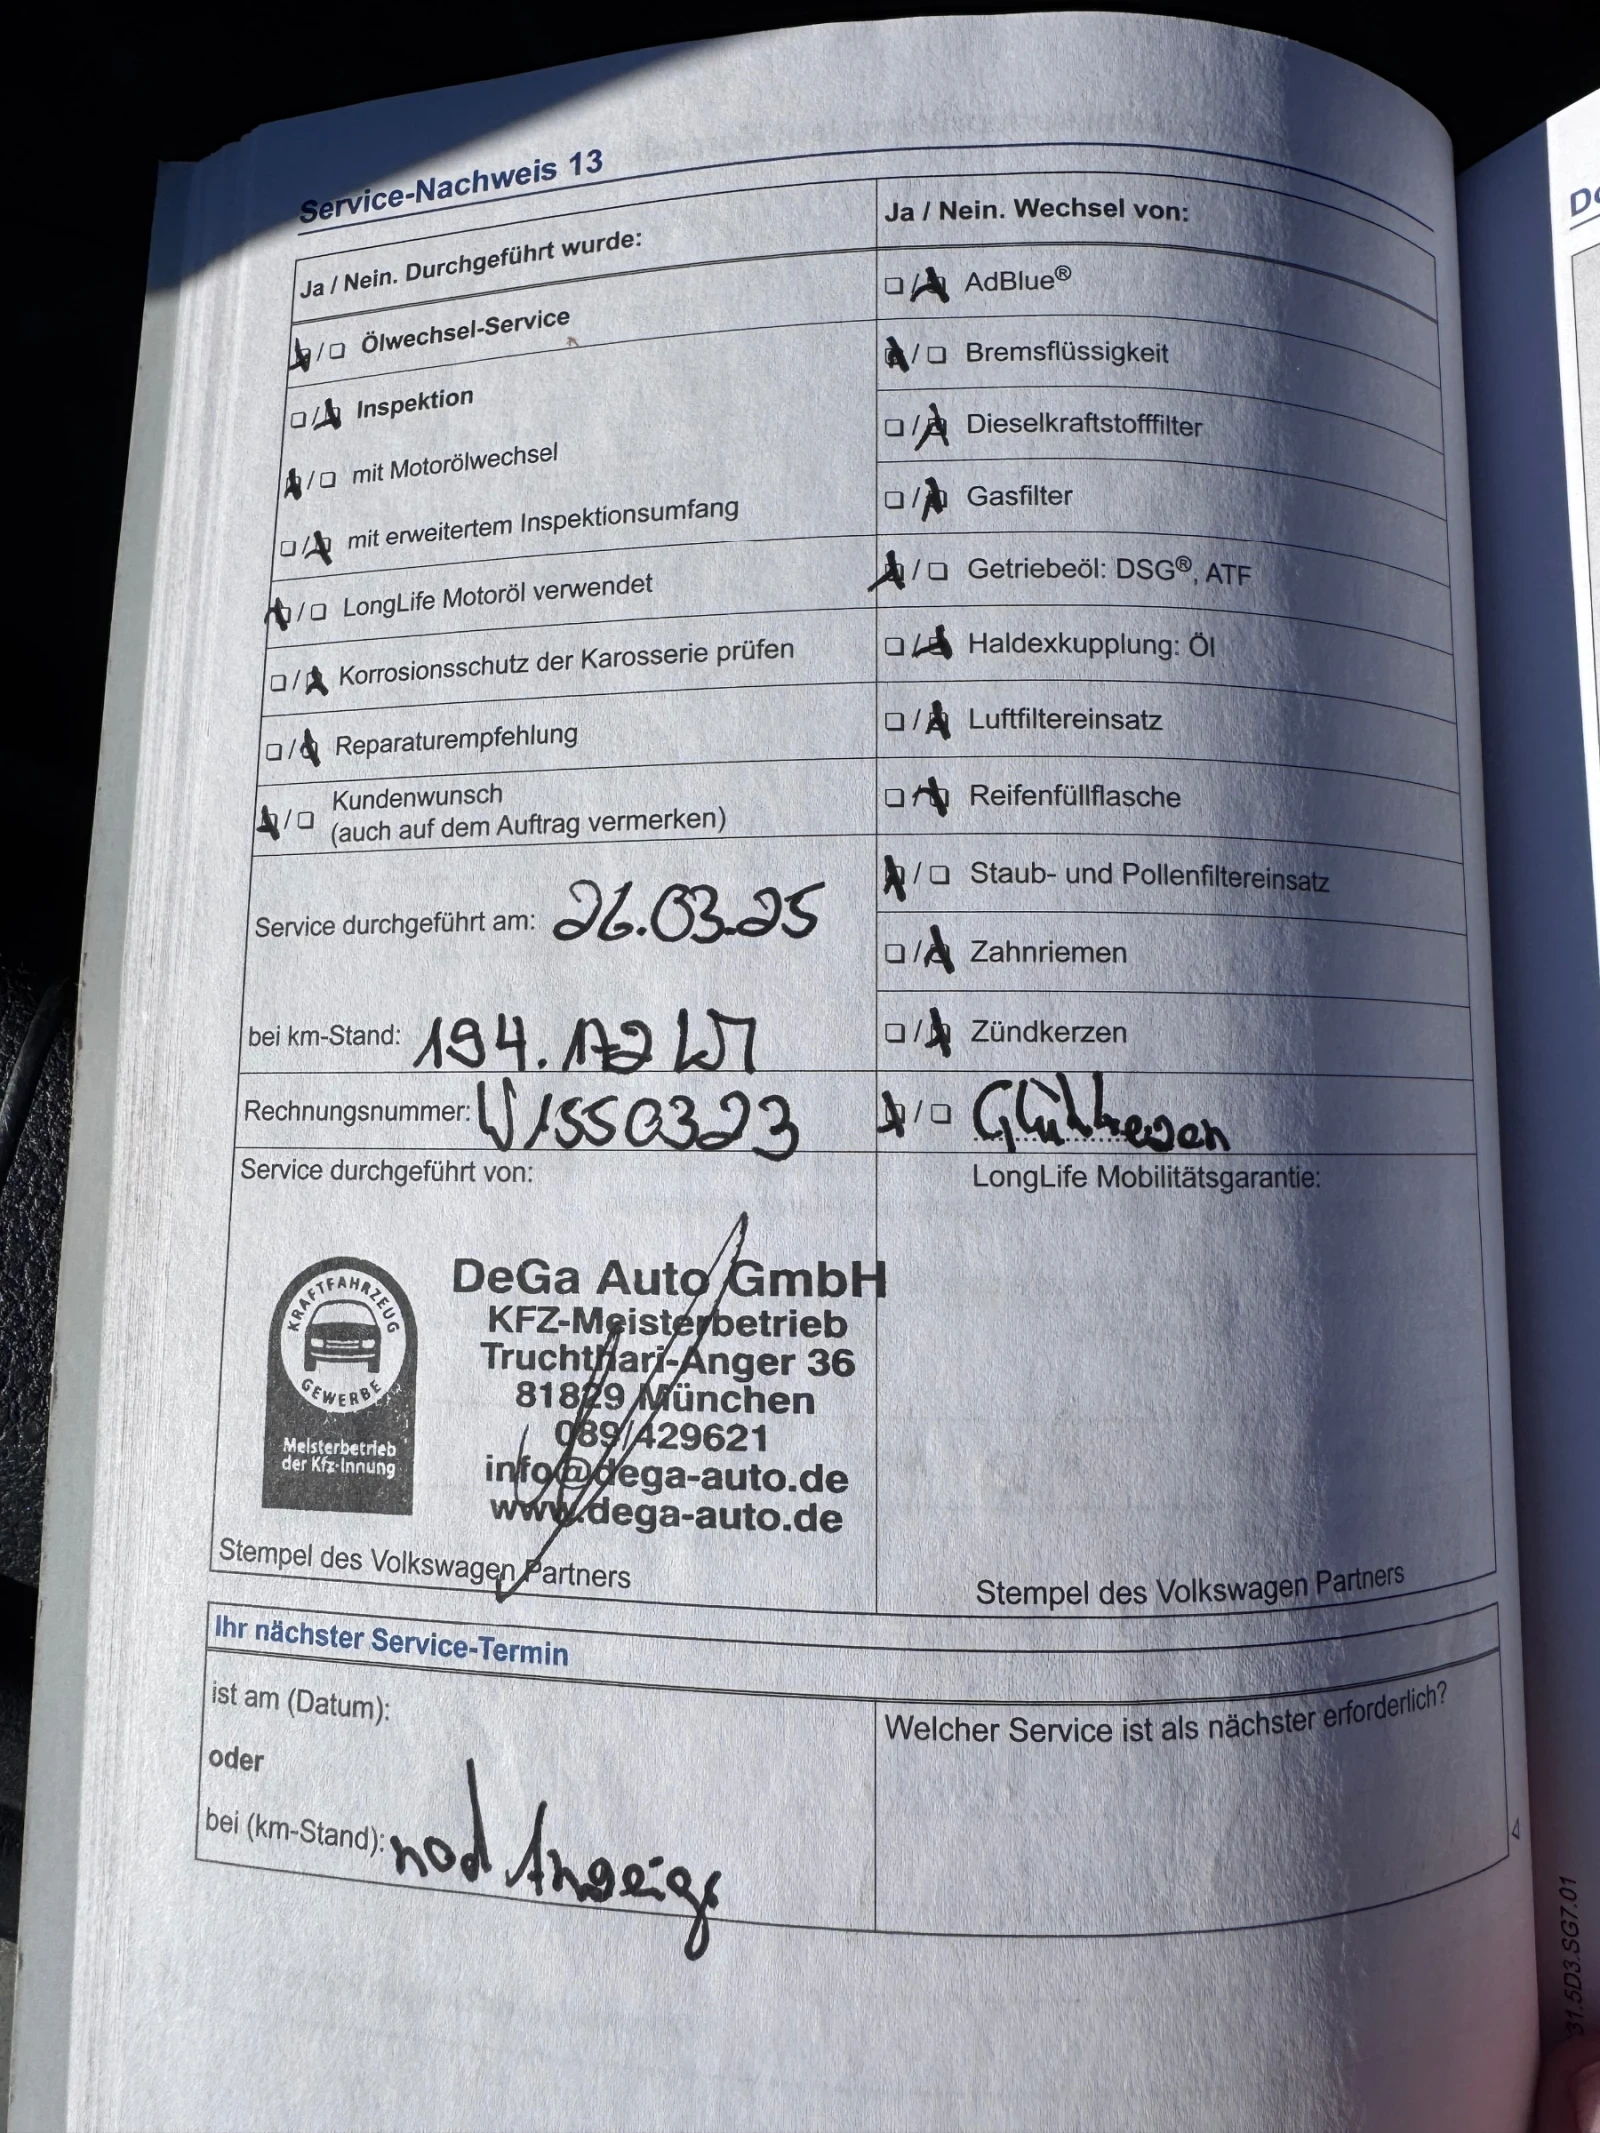 Service-Nachweis 13
Ja / Nein. Durchgeführt wurde:
Ölwechsel-Service
Inspektion
mit Motorölwechsel
mit erweitertem Inspektionsumfang
LongLife Motoröl verwendet
Korrosionsschutz der Karosserie prüfen
Reparaturempfehlung
Kundenwunsch
(auch auf dem Auftrag vermerken)
Service durchgeführt am: 26.03.25
bei km-Stand: 194.172 km
Rechnungsnummer: W1550323
Ja / Nein. Wechsel von:
AdBlue®
Bremsflüssigkeit
Dieselkraftstofffilter
Gasfilter
Getriebeöl: DSG®, ATF
Haldexkupplung: Öl
Luftfiltereinsatz
Reifenfüllflasche
Staub- und Pollenfiltereinsatz
Zahnriemen
Zündkerzen
Service durchgeführt von:
KRAFTFAHRZEUG
GEWERBE
Meisterbetrieb
der Kfz-Innung
DeGa Auto GmbH
KFZ-Meisterbetrieb
Truchthari-Anger 36
81829 München
089/429621
info@dega-auto.de
www.dega-auto.de
Stempel des Volkswagen Partners
LongLife Mobilitätsgarantie:
Stempel des Volkswagen Partners
Ihr nächster Service-Termin
ist am (Datum):
oder
bei (km-Stand): nach Anzeige
Welcher Service ist als nächster erforderlich?
31.5D3.SG7.01